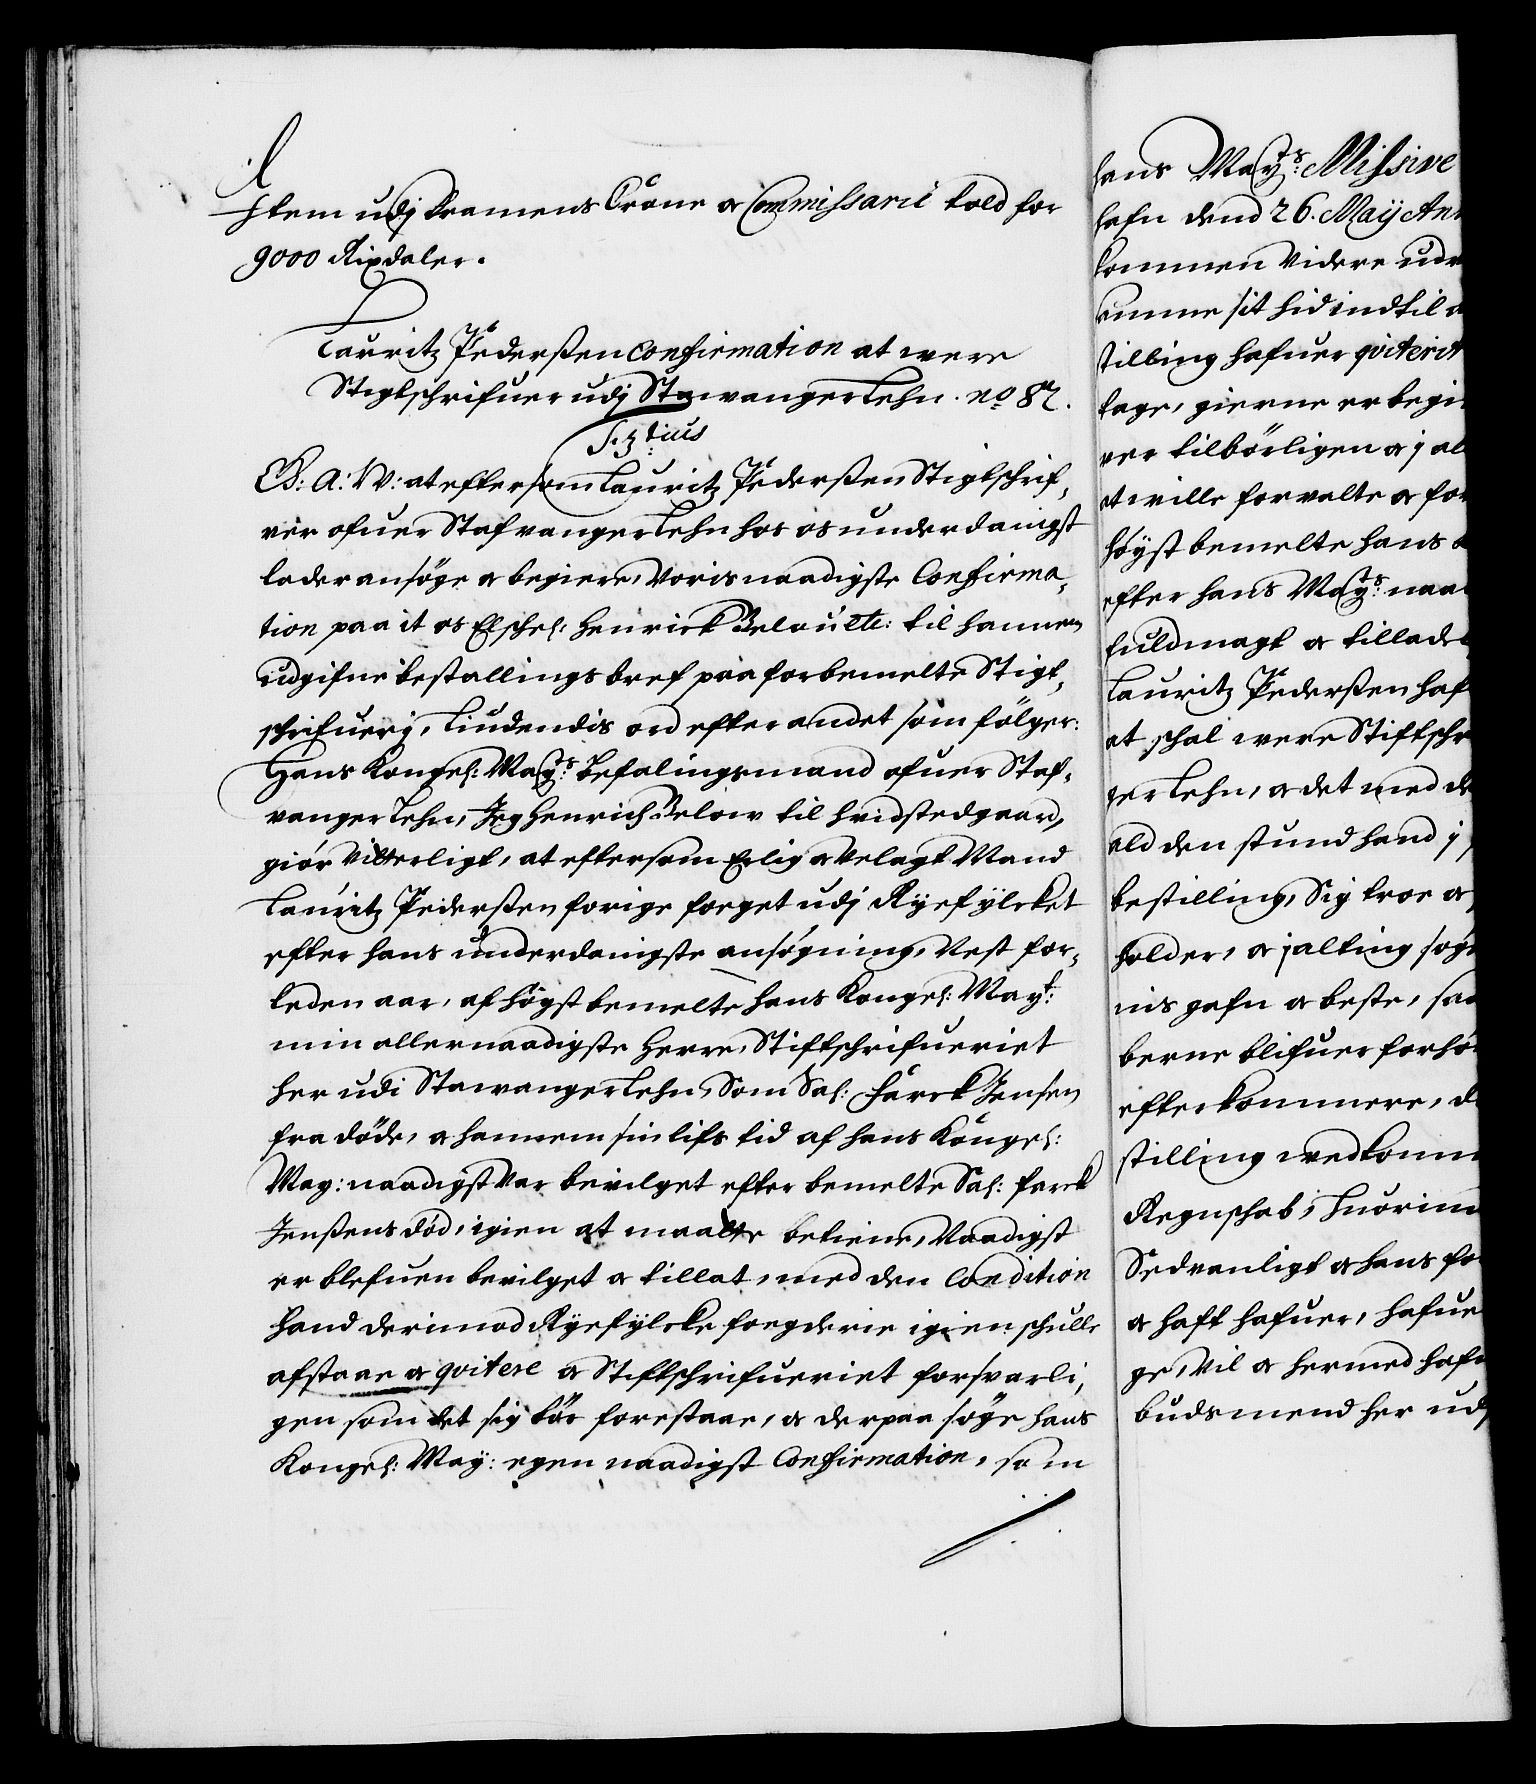 Item udj kramens Crone oc Commissarie told for
9000 Rixdaler.
Lauritz Pederssen Confirmation at were
Stigtschrifuer udj Stawanger Lehn. No 82.
F. 3tius
G. A. W: at eftersom Lauritz Pederssen Stigtschrif,
ver ofuer Stafvanger Lehn hos os underdanigst
lader ansøge oc begiere, Voris naadigste Confirma,
tion paa it os Elschel: Henrick Below etc: til hannem
udgifne bestallings bref paa forbemelte Stigt,
schrifuerj, Liudendis ord efter andet som følger:
Hans Kongel: Mayts: befalingsmand ofuer Staf,
vanger Lehn, Jeg Henrich Below til hvidstedgaard,
giør Vitterligt, at eftersom Erlig oc Velagt Mand
Lauritz Pederssen forige foeget udj Ryefylcket
efter hans underdanigste ansøgning, Nest for,
leden aar, af høgst bemelte hans Kongel: Mayt:
min allernaadigste Herre, Stiftschrifueriet
her udi Stawanger Lehn, Som Sal: Farck Jensen
fra døde, oc hannem sin lifs tid af hans Kongel:
May: naadigst var bevilget efter bemelte Sal: farck
Jenssens død, igien at maatte betiene, Naadigst
er blefuen bevilget oc tillat, med den Condition
Hand derimod Ryefylcke foegderie igien schulle
afstaae oc qvitere oc Stiftschrifueriet forsvarli,
gen som det sig bør forestaae, oc derpaa søge hans
Kongel: May: egen naadigst Confirmation, som
hans Mayts: Missive
hafn dend 26. May An
kommen Videre ud
emme sit hid indtil
stilling hafuer qviterit
tage, gierne er begi
ver tilbørligen oc j al
at wille forvalte oc for
høyst bemelte hans
efter hans Mayts: naa
fuldmagt oc tillade
Lauritz Pederssen haf
at schal were Stiftschr
ger Lehn, oc det med de
ald den stund hand j
bestilling, Sig troe oc
holder, oc j alting søg
nis gafn oc beste, saa
berne blifuer forhø
efterkommere, d
stilling vedkomm
Regnschab, huorim
Sedvanligt oc hans for
oc haft hafuer, hafue
ge, Vil oc hermed haf
budsmend her udj